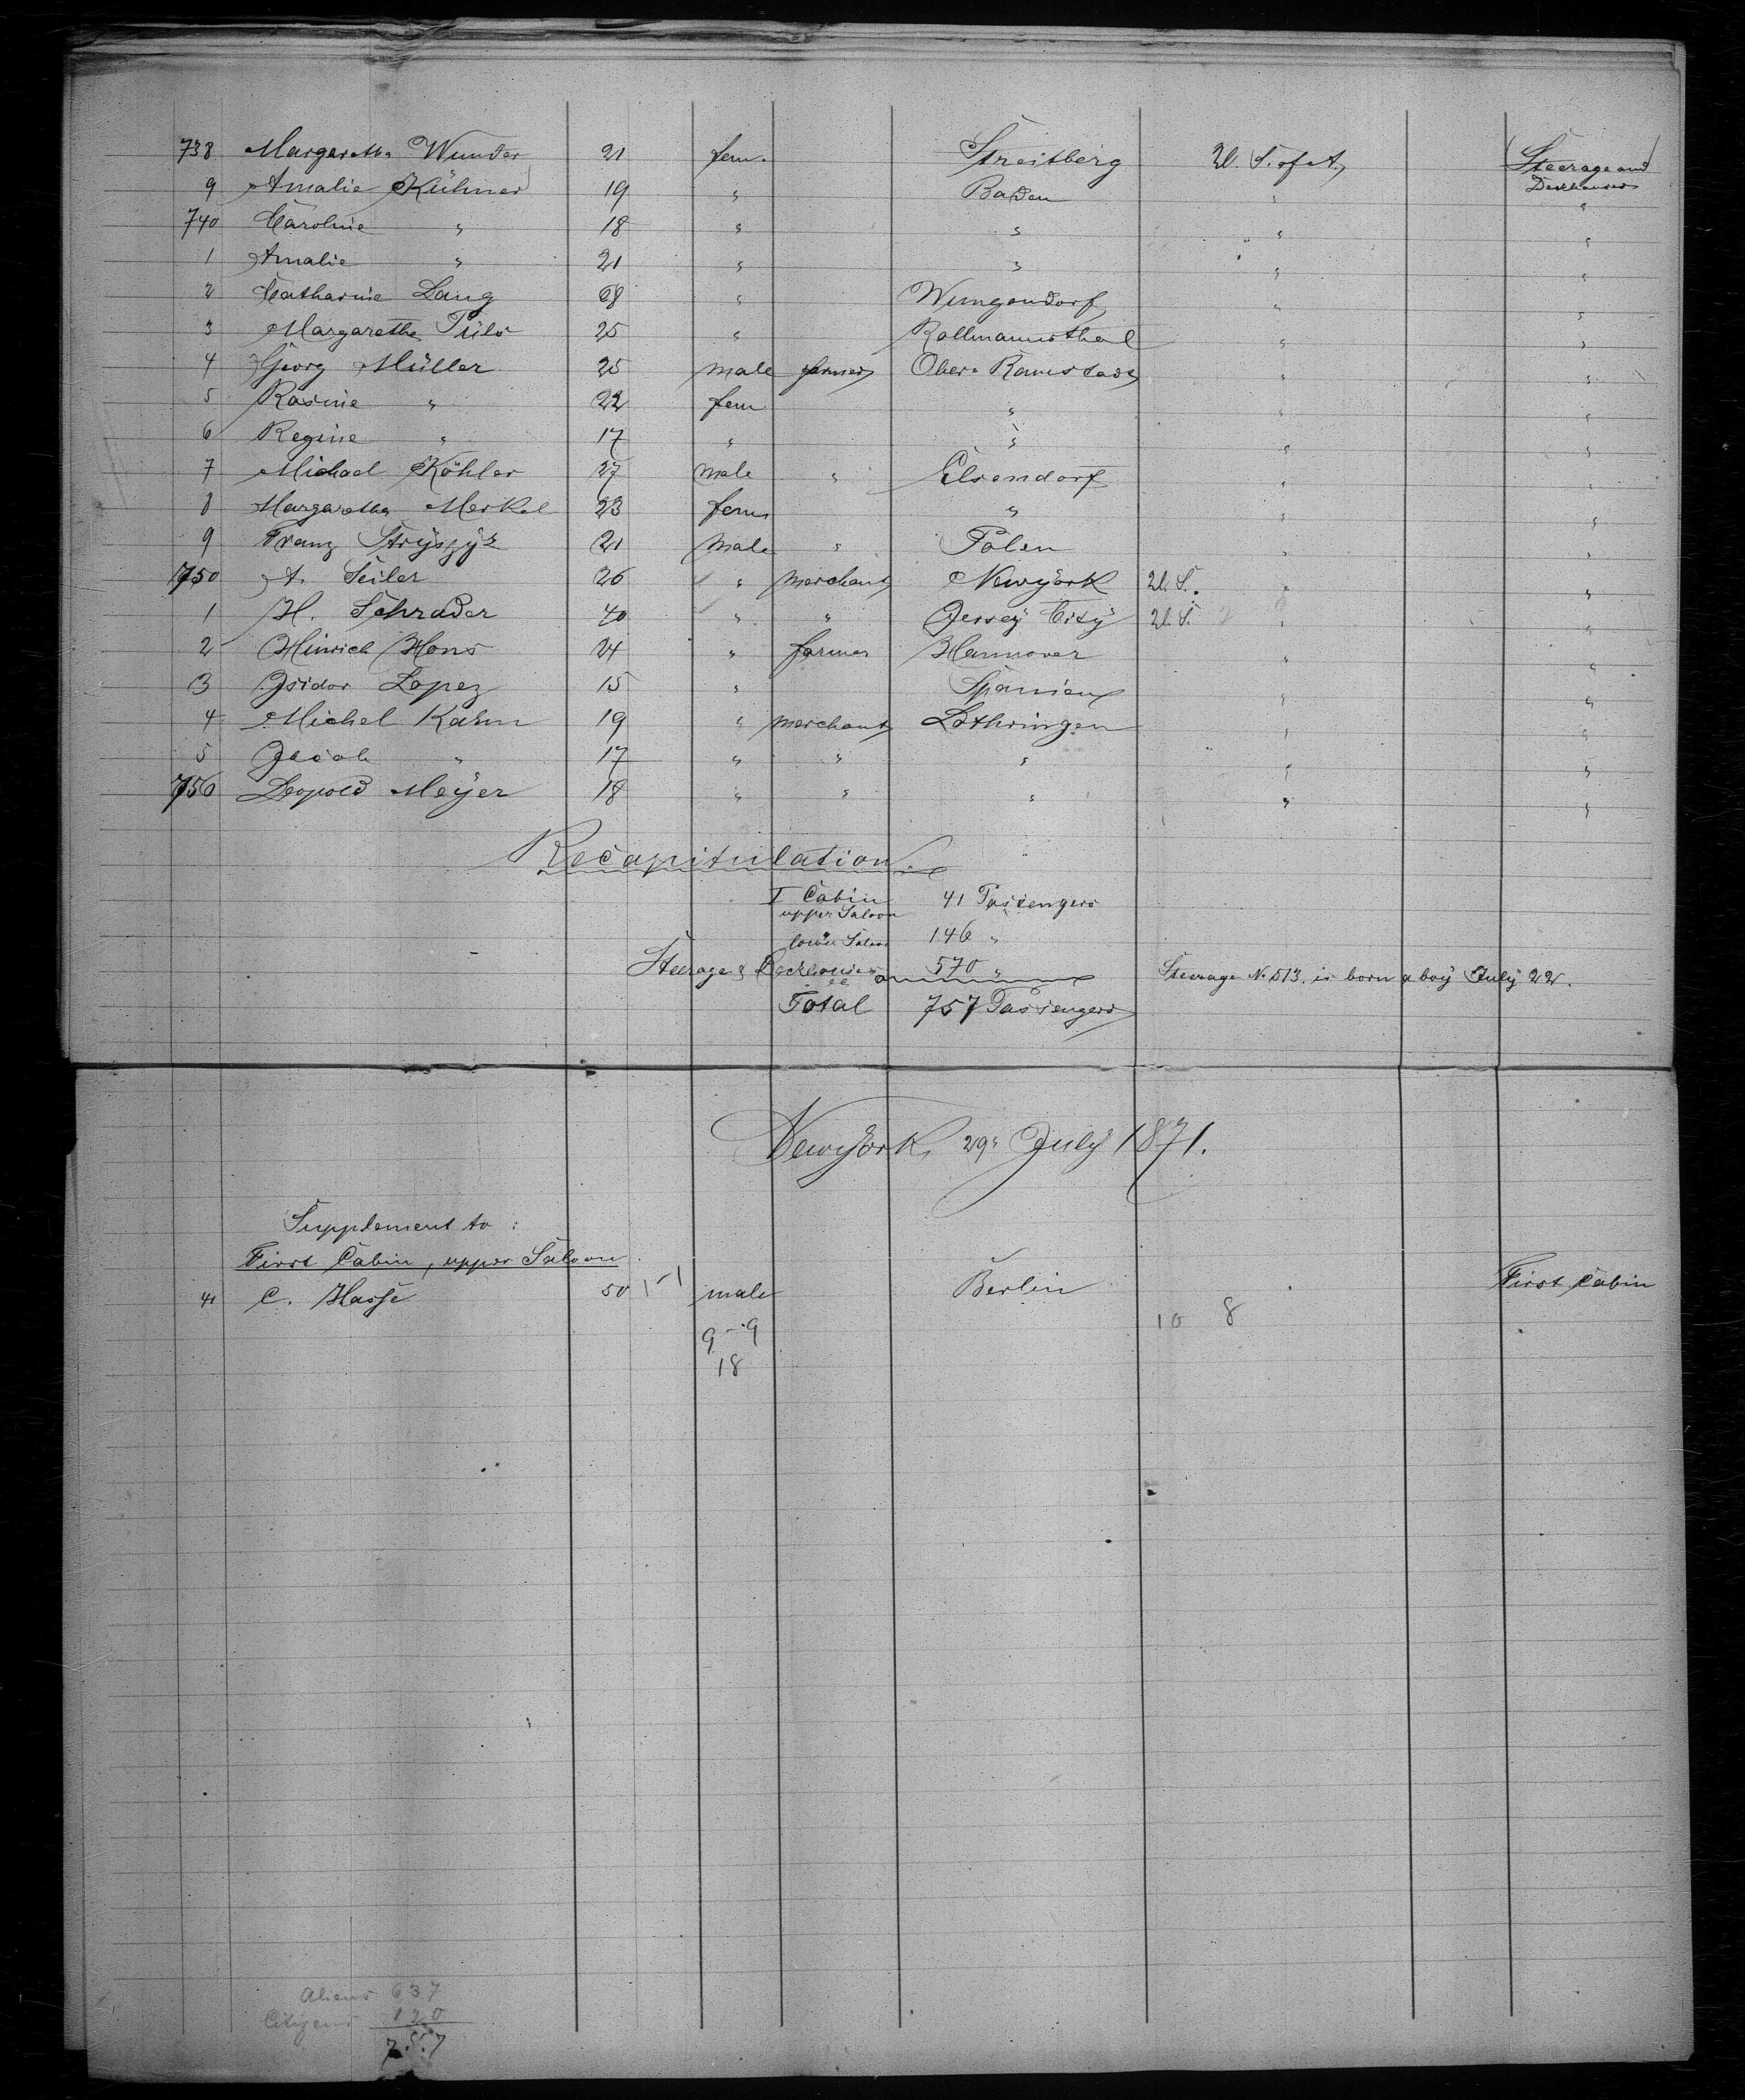 738 Margaretha Wunder 21 fem. Streitberg U. S. of A. Steerage and
Deckhouses
9 Amalie Kühner 19 " Baden " "
740 Caroline " 18 " " " "
1 Amalie " 21 " " " "
2 Catharine Lang 68 " Wungendorf " "
3 Margaretha 25 " Rallmannsthal " "
4 Georg Müller 25 male farmer Ober-Ramstadt " "
5 Rosine " 22 fem " " "
6 Regine " 17 " " " "
7 Michael Köhler 27 male " Elsendorf " "
8 Margaretha Merkel 23 fem " " "
9 Franz 21 male " Polen " "
750 A. Seiler 26 " merchant Newyork U. S. " "
1 H. Schrader 40 " " Jersey City U. S. " "
2 Hinrich Hons 24 " farmer Hannover " "
3 Isidor Lopez 15 " Spanien " "
4 Michel Kahn 19 " merchant Lothringen " "
5 Jacob " 17 " " " " "
756 Leopold Meyer 18 " " " " "
Recapitulation.
I Cabin 41 Passengers
upper Saloon
lower Saloon 146 "
Steerage & Deckhouses 570 " Steerage No 513. is born a boy July 22.
Total 757 Passengers
Newyork, 29. July 1871.
Supplement to :
First Cabin, upper Saloon
41 C. Hasse 50 male Berlin First Cabin
10 8
9 - 9
18
Aliens 637
Citizens 120
757